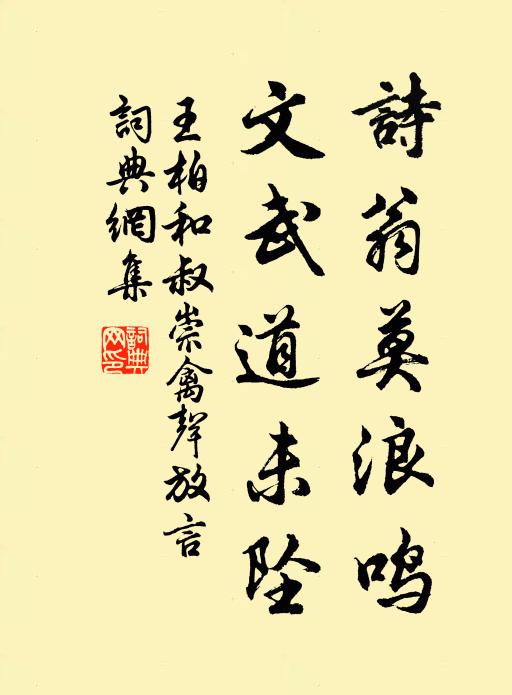 詩翁莫浪鸣
文武道未坠
王柏和叔崇禽聲放言
詞典網集
詞典网印